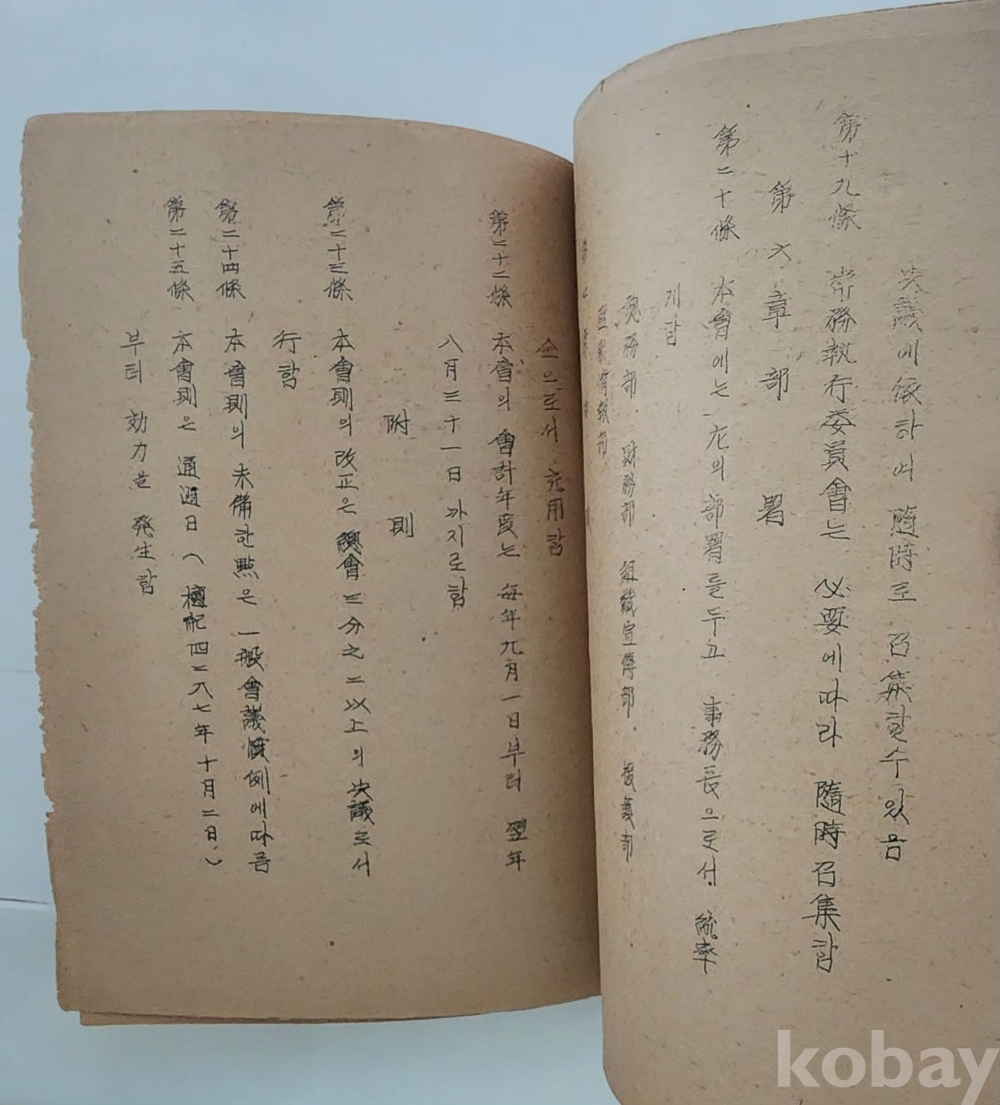 決議에 依하여 隨時로 召集할수있음
第十九條 常務執行委員會는 必要에따라 隨時召集함
第六章 部署
第二十條 本會에는 左의 部署를 두고 事務長으로서 統率
케함
總務部 財務部 組織宣傳部
으로서 充用함
第二十二條 本會의 會計年度는 每年九月一日부터 翌年
八月三十一日 까지로함
附則
第二十三條 本會則의 改正은 總會 三分之二以上의 決議로서
行함
第二十四條 本會則의 未備한點은 一般會議慣例에따름
第二十五條 本會則은 通過日(檀紀四二八七年十月二日.)
부터 効力을 發生함
kobay